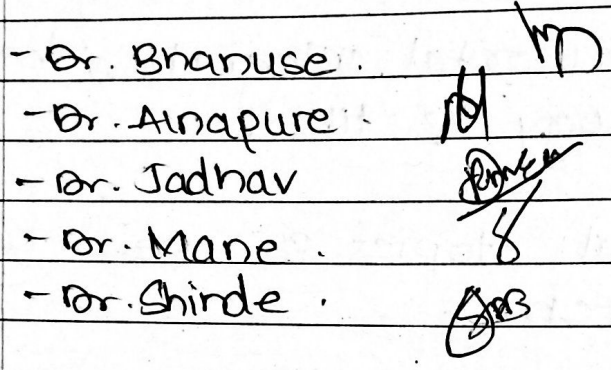 - Dr. Bhanuse.
- Dr. Ainapure.
- Dr. Jadhav
- Dr. Mane.
- Dr. Shinde.